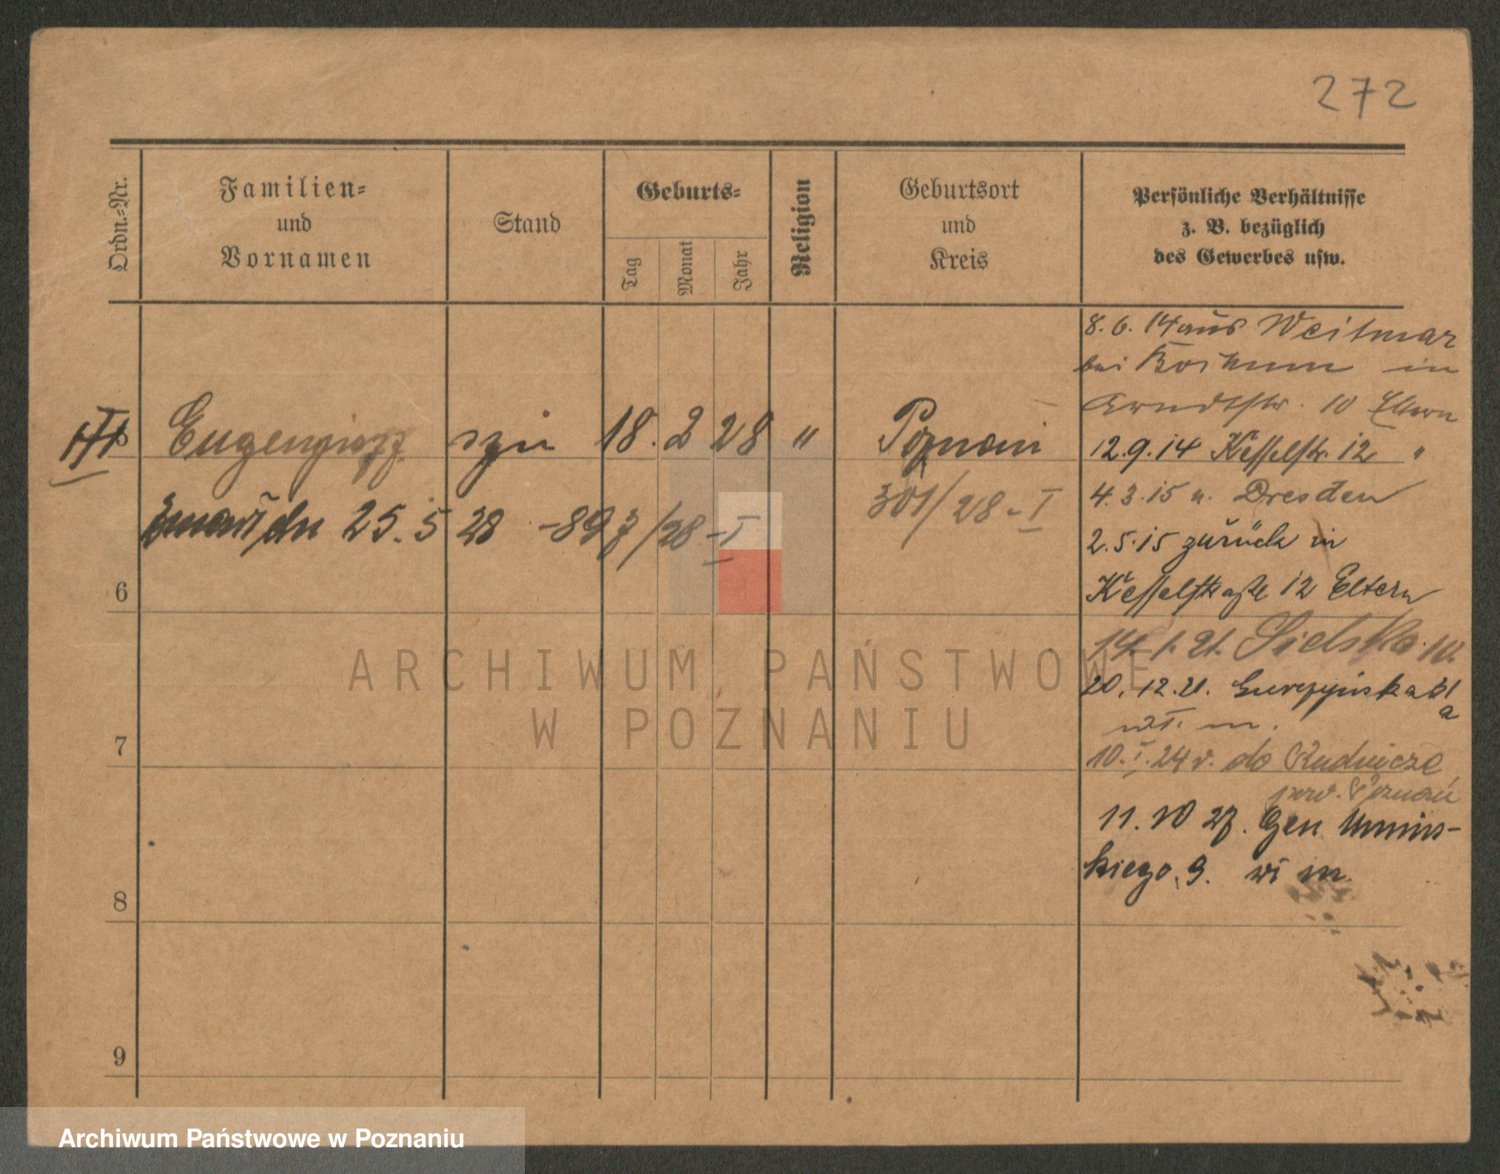 272
Ordn.-Nr.
Familien-
und
Vornamen
Stand
Geburts-
Tag
Monat
Jahr
Religion
Geburtsort
und
Kreis
Persönliche Verhältnisse
z. B. bezüglich
des Gewerbes usw.
8. 6. 14 aus Weitmar
bei Bochum in
Arndtstr. 10 Eltern
III 5 syn 18. 2 28 " Poznań
12. 9. 14 Kesselstr. 12 "
301/28-I
4. 3. 15 n. Dresden
zmarł dn 25. 5 28 -897/28-I
2. 5. 15 zurück in
6
Kesselstraße 12 Eltern
14. 1. 21. Sielska 10.
20. 12. 21. 31
a
wł. m.
7
10. I. 24 r. do Rudnicze
pow. Poznań
11. 10 27. Gen Umińs-
kiego 9. wł m.
8
9
ARCHIWUM PAŃSTWOWE
W POZNANIU
Archiwum Państwowe w Poznaniu